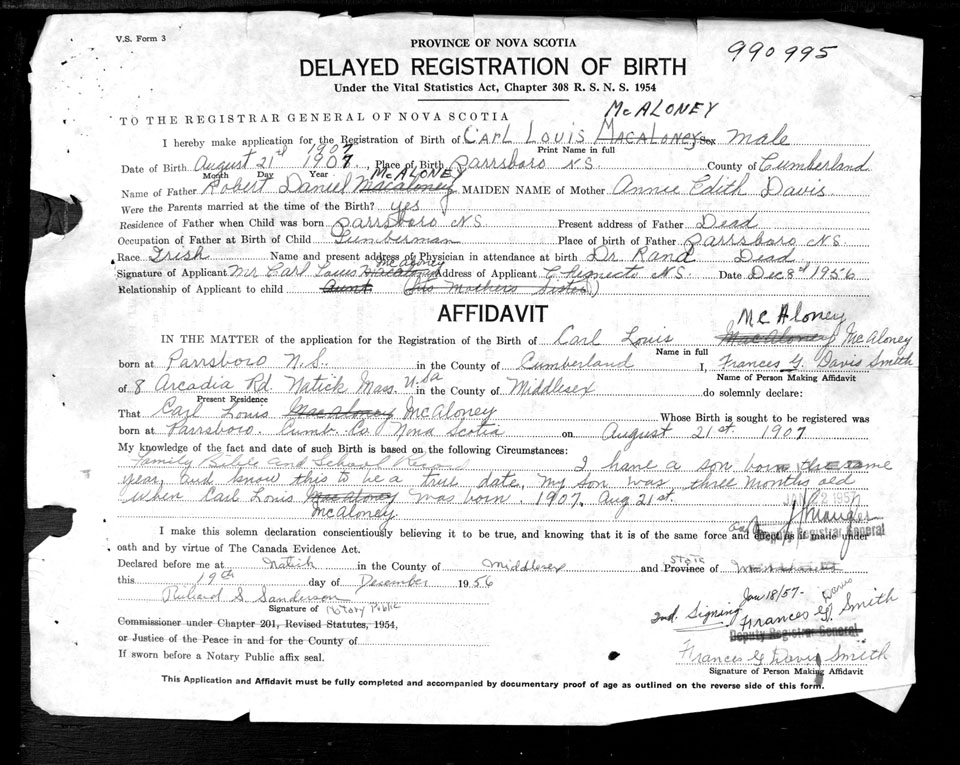 V.S. Form 3
990995
PROVINCE OF NOVA SCOTIA
DELAYED REGISTRATION OF BIRTH
Under the Vital Statistics Act, Chapter 308 R. S. N. S. 1954
McALONEY
TO THE REGISTRAR GENERAL OF NOVA SCOTIA
I hereby make application for the Registration of Birth of CARL LOUIS MACALONEY Sex male
Print Name in full
1907
Date of Birth August 21st 1907, Place of Birth Parrsboro N.S. County of Cumberland
Month Day Year
McALONEY
Name of Father Robert Daniel Macaloney MAIDEN NAME of Mother Annie Edith Davis
Were the Parents married at the time of the Birth? yes
Residence of Father when Child was born Parrsboro N.S. Present address of Father Dead
Occupation of Father at Birth of Child Lumberman Place of birth of Father Parrsboro N.S.
Race Irish Name and present address of Physician in attendance at birth Dr. Rand Dead
McAloney
Signature of Applicant Mr Carl Louis Macaloney Address of Applicant N.S. Date Dec 8th 1956
Relationship of Applicant to child Aunt (His Mothers Sister)
AFFIDAVIT
McAloney
IN THE MATTER of the application for the Registration of the Birth of Carl Louis MacAloney McAloney
Name in full
born at Parrsboro N.S. in the County of Cumberland I, Frances G. Davis Smith
Name of Person Making Affidavit
of 8 Arcadia Rd. Natick Mass. U.Sa in the County of Middlesex do solemnly declare:
Present Residence
That Carl Louis MacAloney McAloney Whose Birth is sought to be registered was
born at Parrsboro. Cumb. Co. Nova Scotia on August 21st. 1907
My knowledge of the fact and date of such Birth is based on the following Circumstances:
Family Bible and School Record I, have a son born the same
year, and know this to be a true date, my son was three months old
when Carl Louis MacAloney was born. 1907. Aug 21st.
McAloney
JAN 22 1957
I make this solemn declaration conscientiously believing it to be true, and knowing that it is of the same force and effect as if made under
Deputy Registrar General
oath and by virtue of The Canada Evidence Act.
Declared before me at Natick in the County of Middlesex and State Province of
this 19th day of December 1956
Richard S. Sanderson
Signature of Notary Public
Jan 18/57-
2nd. Signing Frances G. Davis Smith
Commissioner under Chapter 201, Revised Statutes, 1954,
Deputy Registrar General
or Justice of the Peace in and for the County of
If sworn before a Notary Public affix seal.
Frances G Davis Smith
Signature of Person Making Affidavit
This Application and Affidavit must be fully completed and accompanied by documentary proof of age as outlined on the reverse side of this form.